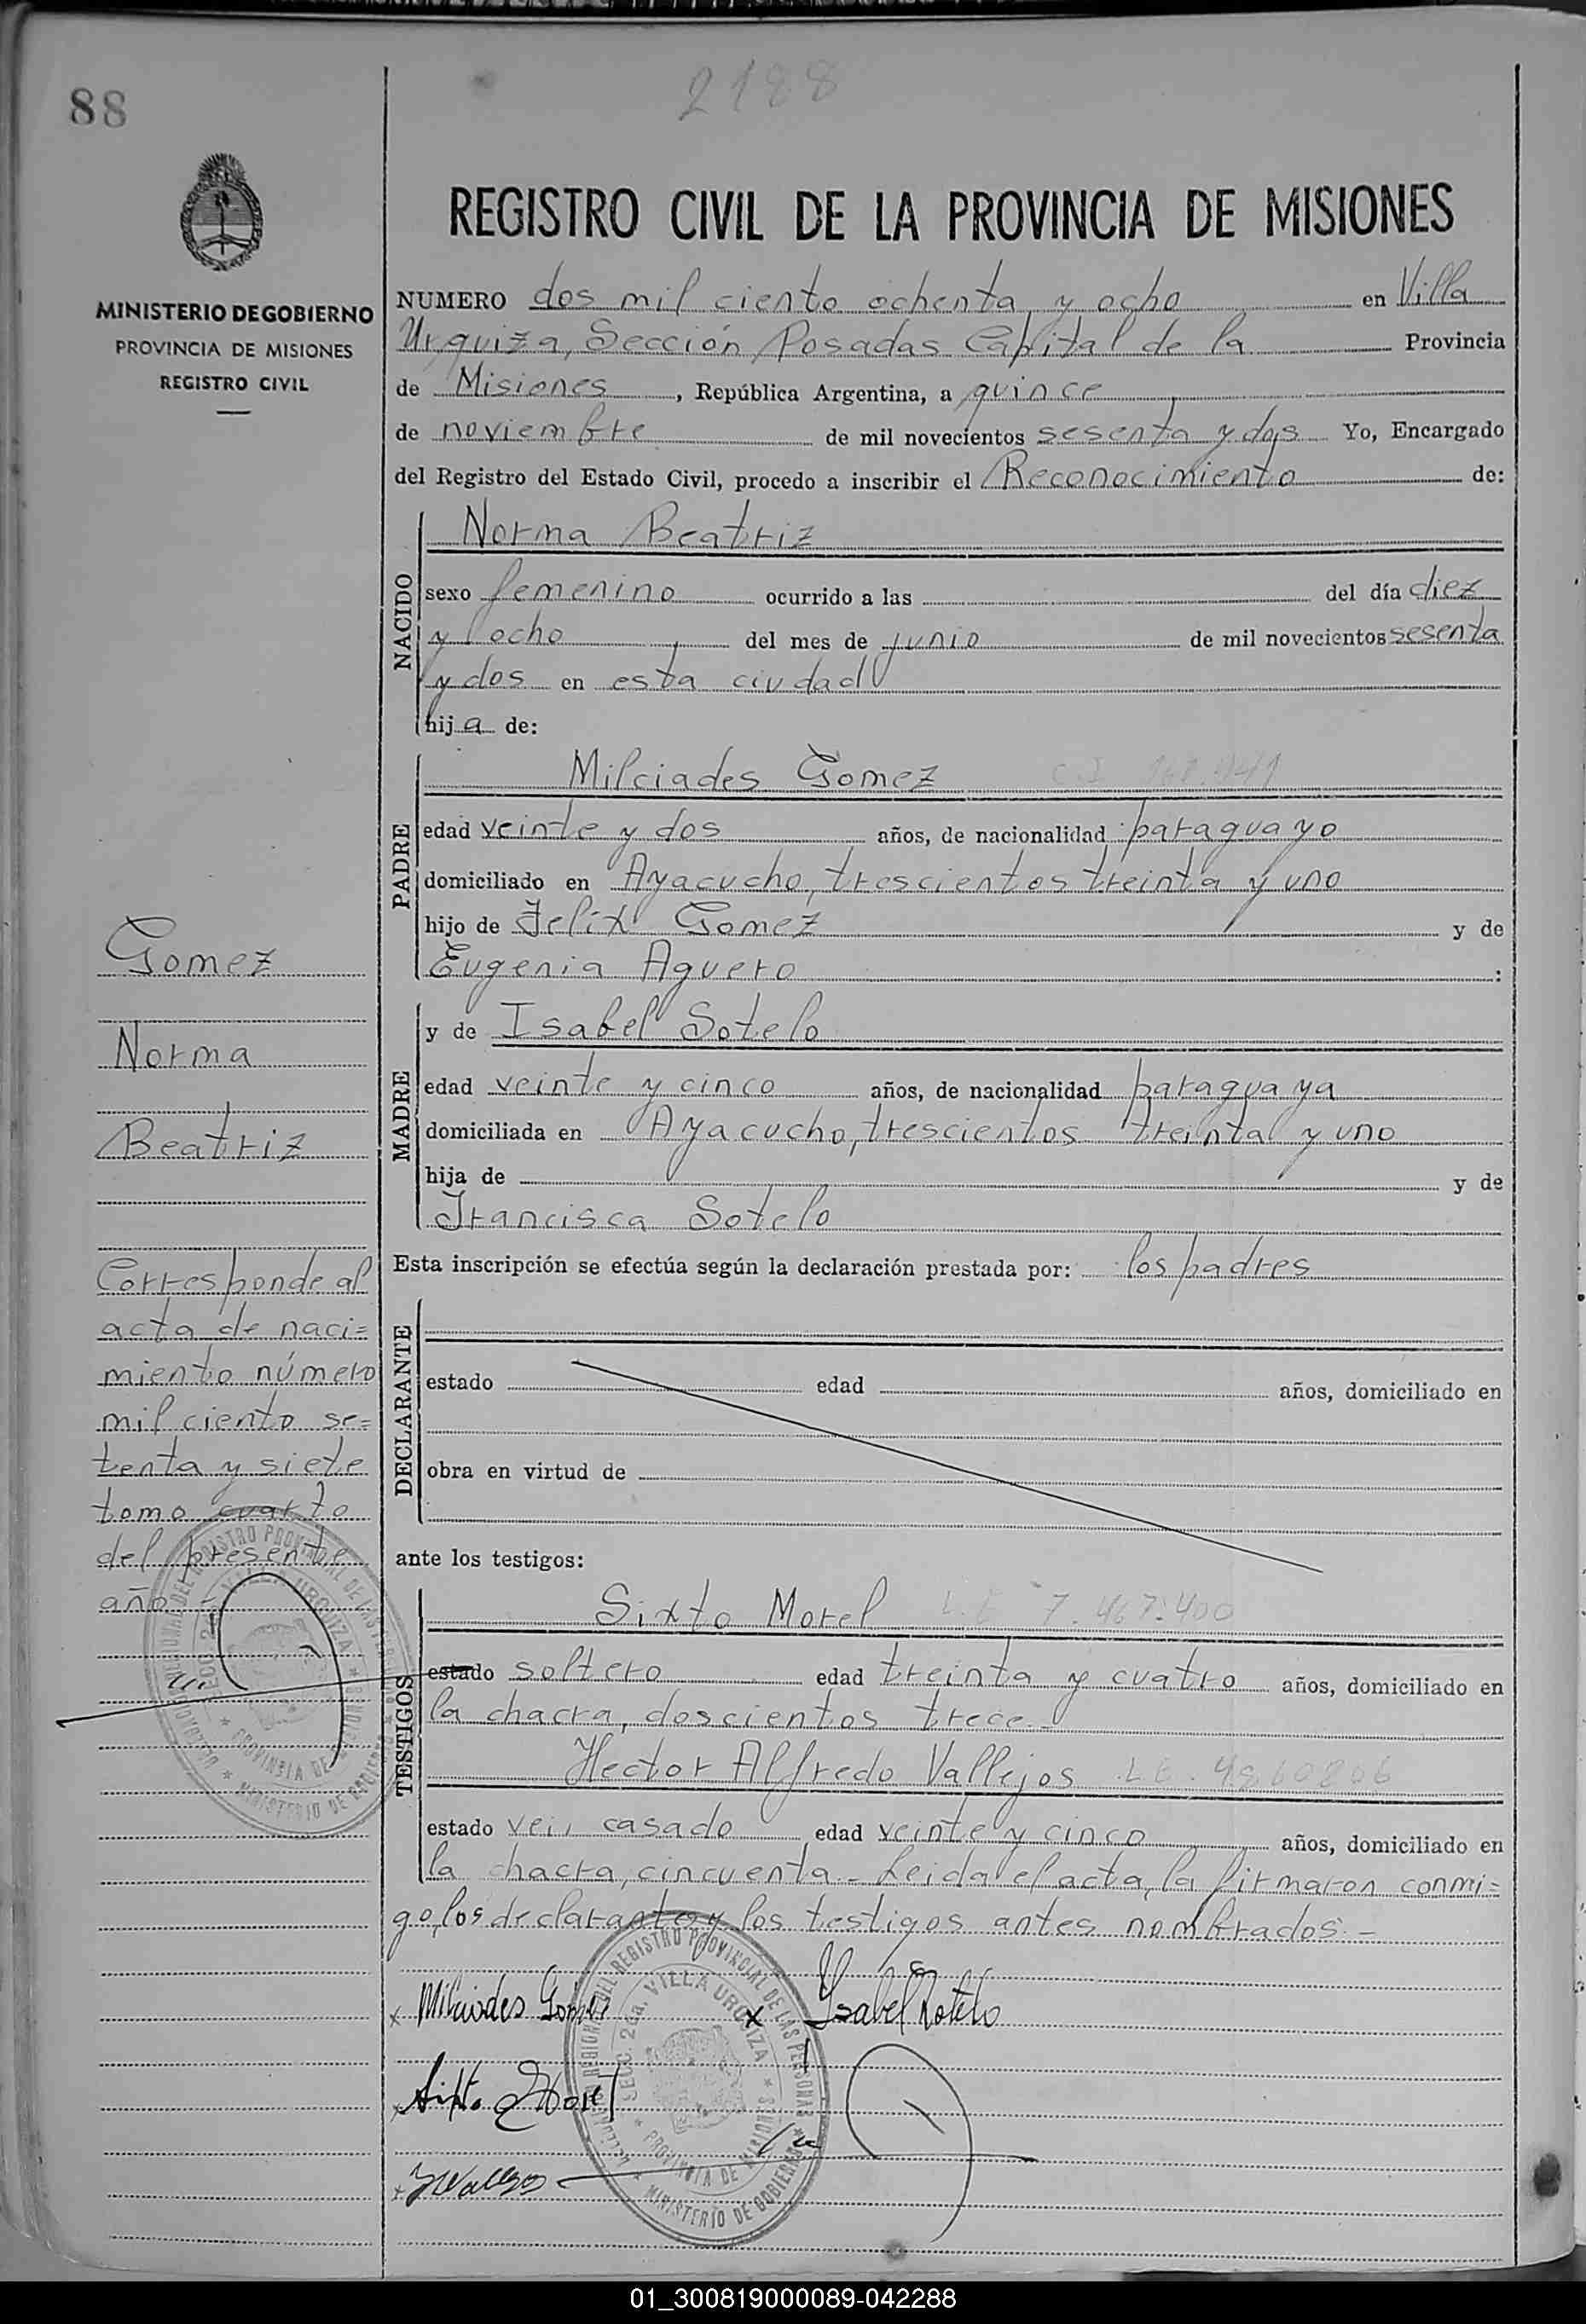 88
2188
MINISTERIO DE GOBIERNO
PROVINCIA DE MISIONES
REGISTRO CIVIL
REGISTRO CIVIL DE LA PROVINCIA DE MISIONES
NUMERO dos mil ciento ochenta y ocho en Villa
Urquiza, Sección Posadas Capital de la Provincia
de Misiones, República Argentina, a quince
de noviembre de mil novecientos sesenta y dos Yo, Encargado
del Registro del Estado Civil, procedo a inscribir el Reconocimiento de:
NACIDO
Norma Beatriz
sexo femenino ocurrido a las del día diez
y ocho del mes de junio de mil novecientos sesenta
y dos en esta ciudad
hija de:
PADRE
Milciades Gomez C.I
edad veinte y dos años, de nacionalidad paraguayo
domiciliado en Ayacucho, trescientos treinta y uno
hijo de Felix Gomez y de
Eugenia Aguero :
MADRE
y de Isabel Sotelo
edad veinte y cinco años, de nacionalidad paraguaya
domiciliada en Ayacucho, trescientos treinta y uno
hija de y de
Francisca Sotelo
Esta inscripción se efectúa según la declaración prestada por: los padres
DECLARANTE
estado edad años, domiciliado en
obra en virtud de
ante los testigos:
TESTIGOS
Sixto Morel L.E 7.467.400
estado soltero edad treinta y cuatro años, domiciliado en
la chacra, doscientos trece.-
Hector Alfredo Vallejos L E.
estado vei, casado edad veinte y cinco años, domiciliado en
la chacra, cincuenta.- Leida el acta, la firmaron conmi=
go, los declarantes y los testigos antes nombrados.-
x Milciades Gomez x Isabel Sotelo
x Sixto Morel
x HVallejos
Gomez
Norma
Beatriz
Corresponde al
acta de naci=
miento número
mil ciento se=
tenta y siete
tomo cuarto
del presente
año
DELEGACION REGIONAL DEL REGISTRO PROVINCIAL DE LAS PERSONAS
SECC. 2da. VILLA URQUIZA
PROVINCIA DE MISIONES
MINISTERIO DE GOBIERNO
01_300819000089-042288